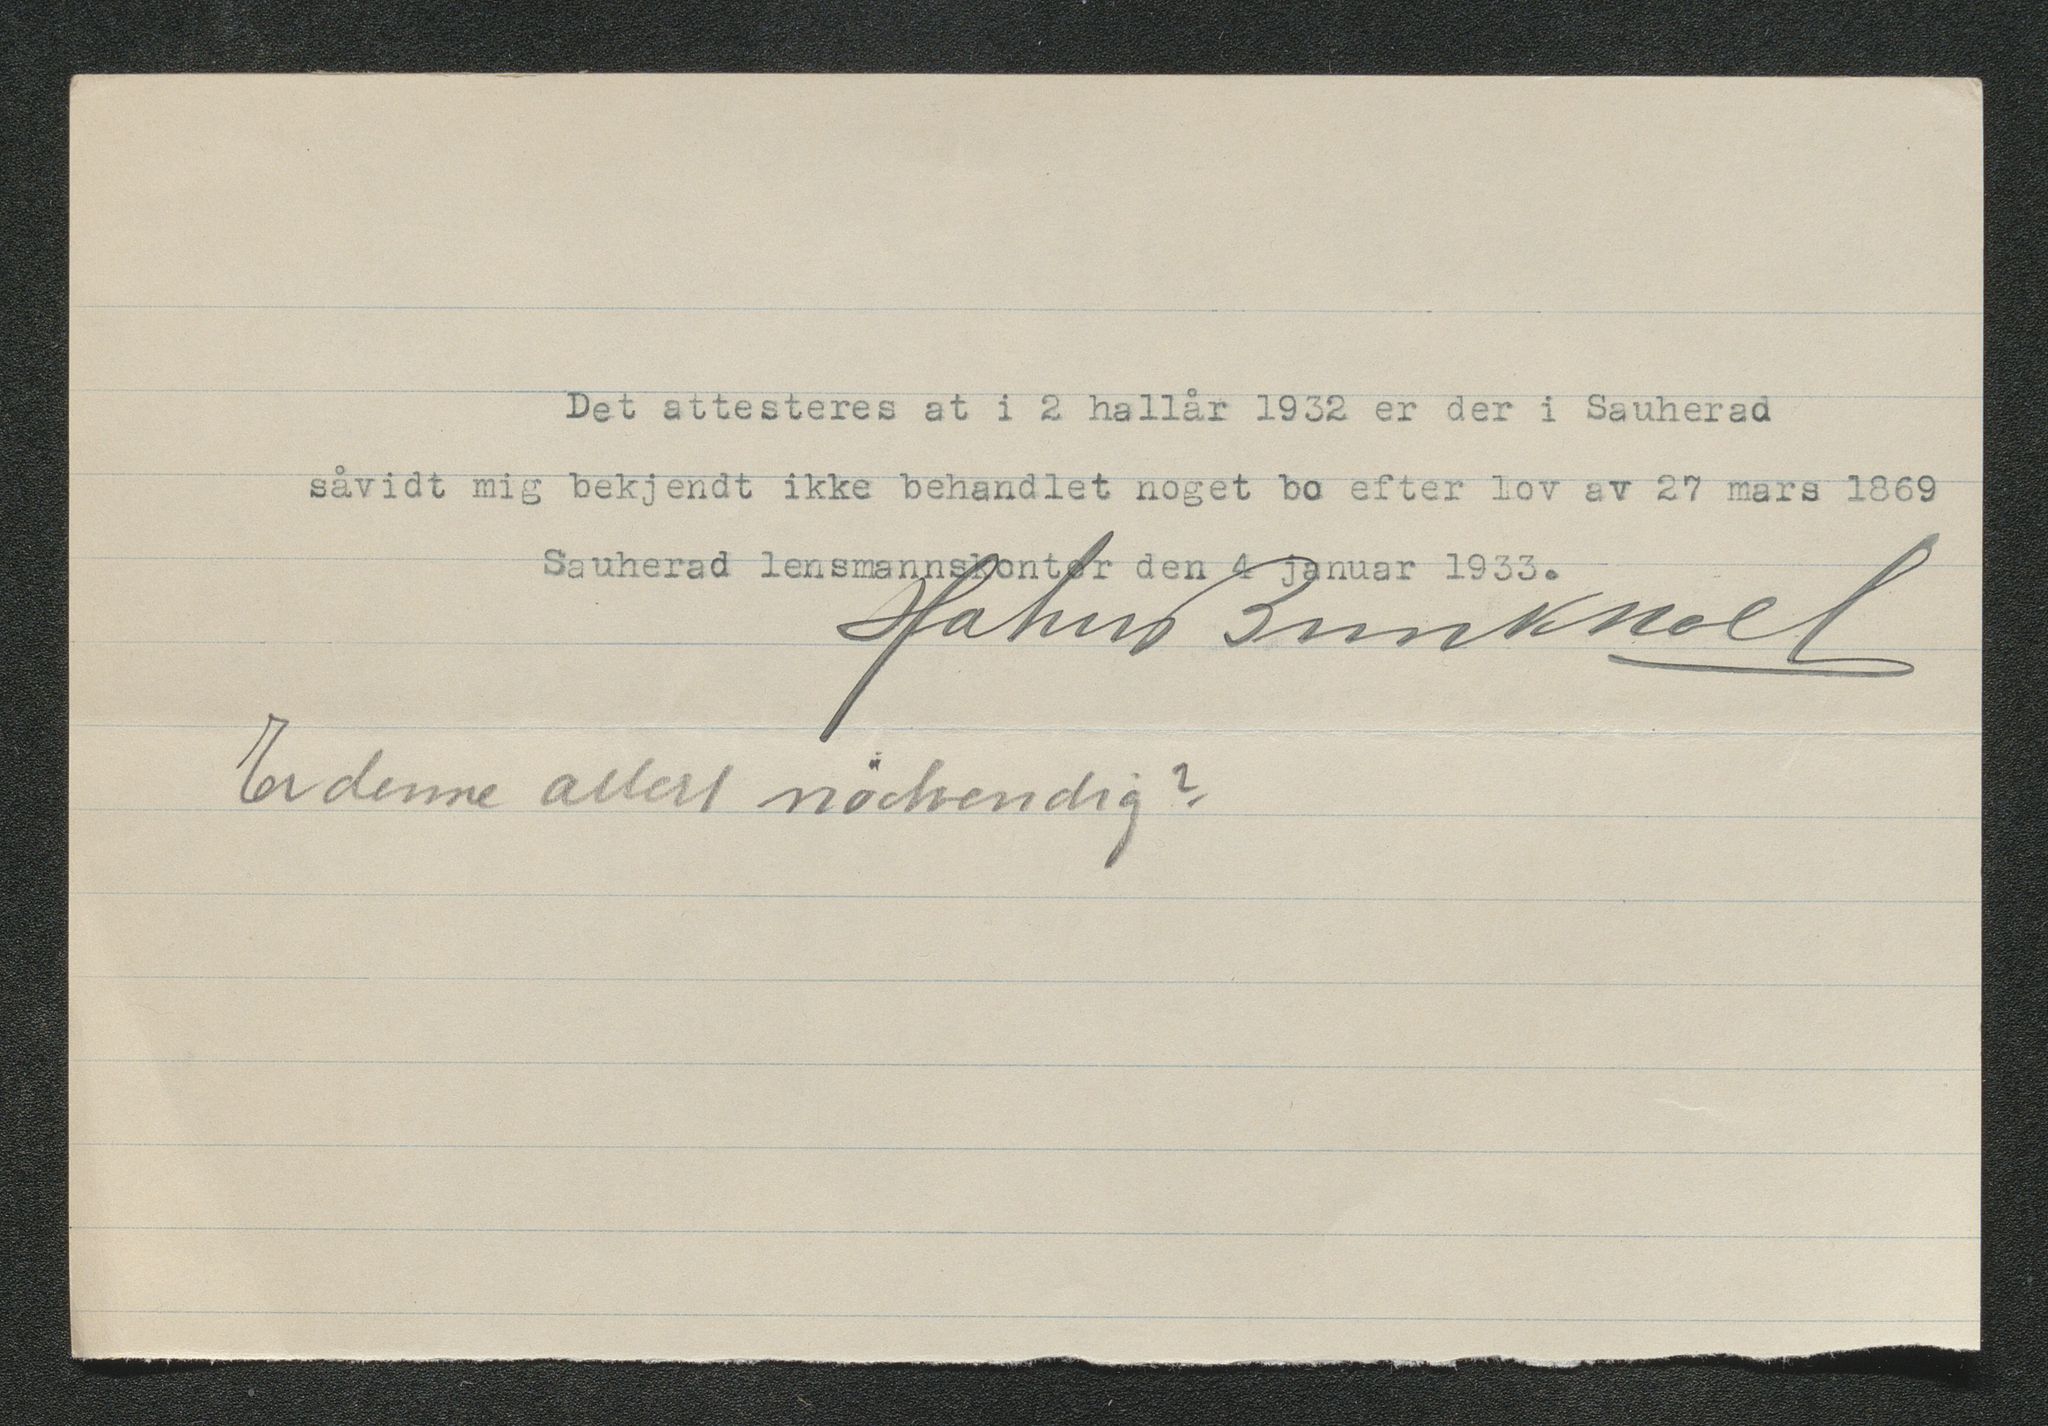 Det attesteres at i 2 hallår 1932 er der i Sauherad
såvidt mig bekjendt ikke behandlet noget bo efter lov av 27 mars 1869
Sauherad lensmannskontor den 4 januar 1933.
Er denne attest nödvendig?